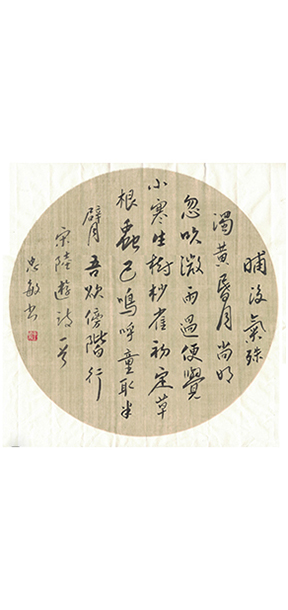 晡後氣殊
濁黃昬月尚明
忽吹微雨過便覺
小寒生樹杪雀初定草
根蟲已鳴呼童取半
臂吾欲傍階行
宋陸遊詩一首
忠敏書